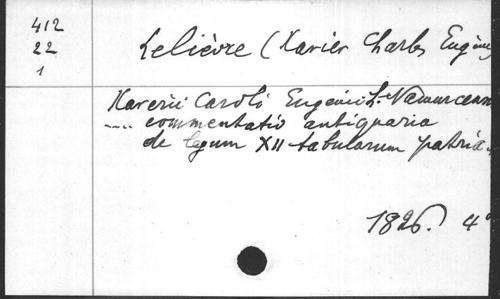 412
22
1
Lelièvre (Xavier Charles Eugène
Xaverii Caroli Eugenii L. Namurcens
.... commentatio antiquaria
de legum XII tabularum patria.
1826. 4°